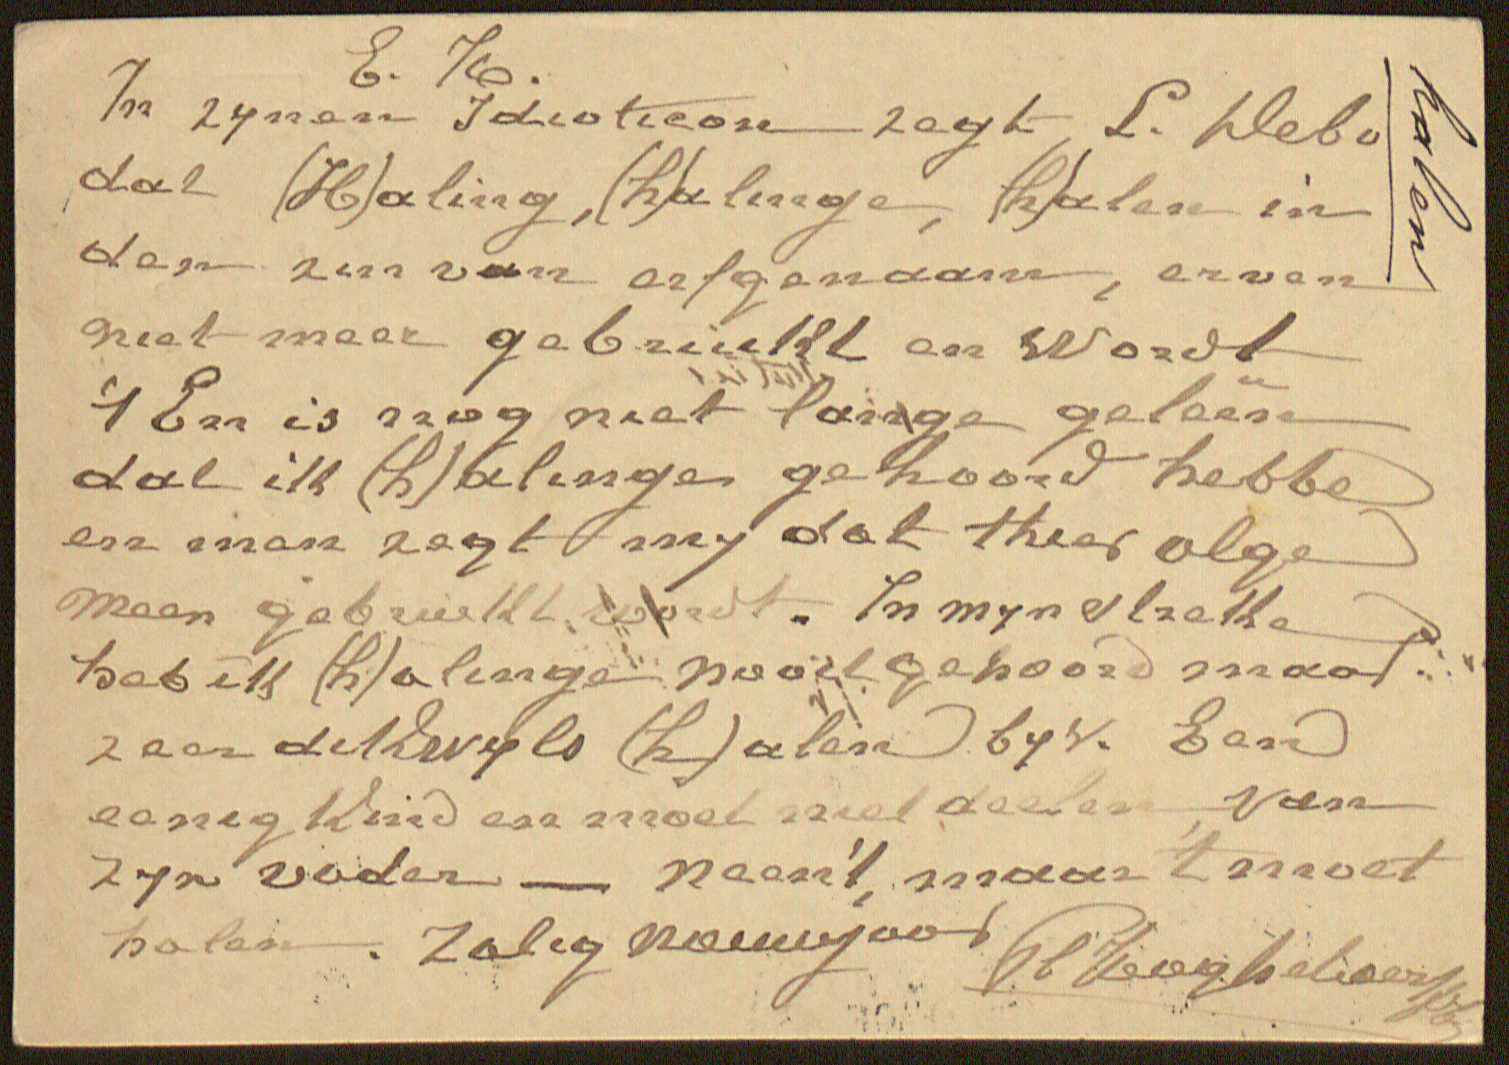 E. H.
In zynen Idioticon zegt L. Debo
dat (H)aling, (h)alinge, (h)alen in
den zin van erfgenaam, erven
niet meer gebruikt en wordt
't En is nog niet lange geleën
dat ik (h)alinge gehoord hebbe
en men zegt my dat thier alge
meen gebruikt wordt. In myn streke
heb ik (h)alinge nooit gehoord maar
zeer dikwyls (h)alen byv. Een
eenig kind en moet niet deelen van
zyn vader — neen't, maar 't moet
halen. Zalig nieuwjaar
halen